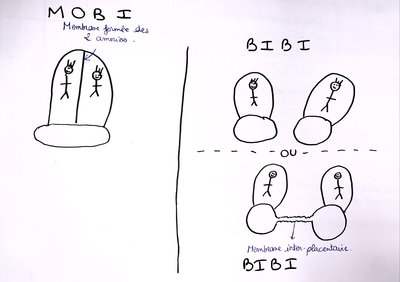 MOBI
Membrane formée des
2 amnios.
BIBI
OU
Membrane inter-placentaire.
BIBI